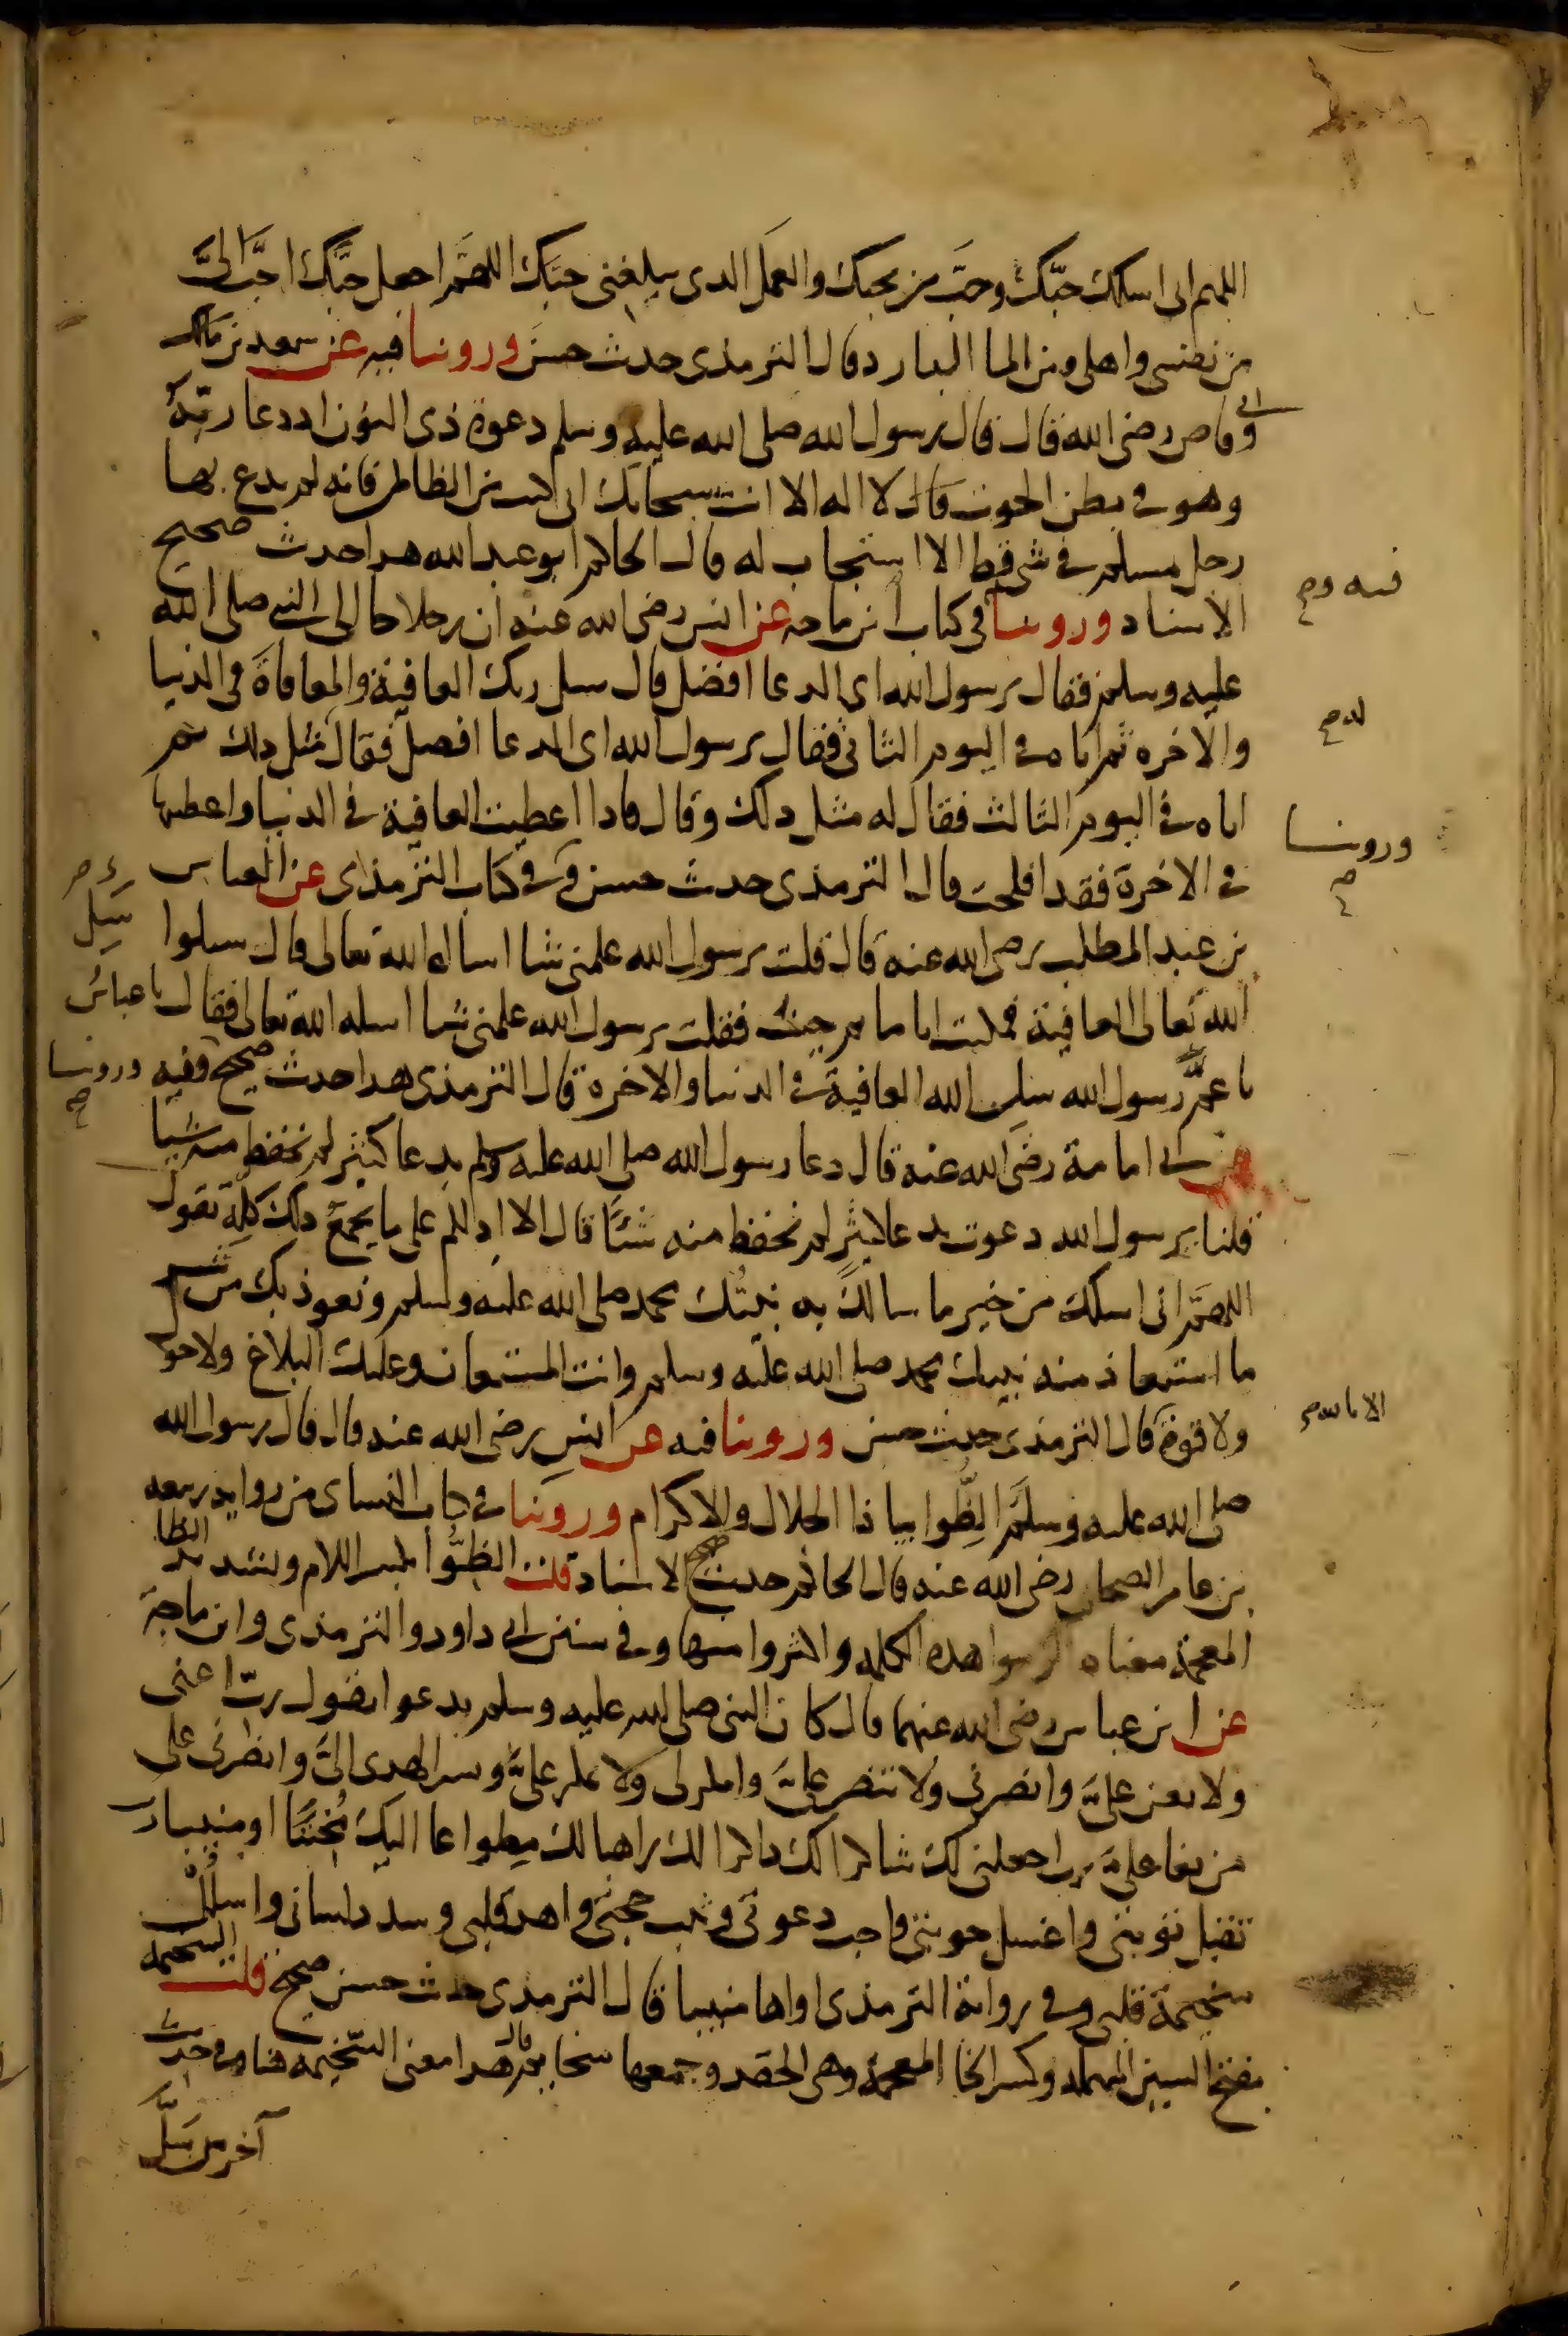 اللهم انى اسلك حبّك وحبّ من يحبك والعمل الذى يبلغنى حبّك اللهمّ اجعل حبّك احبّ الىّ
من نفسى واهلى ومن الما البارد وقال الترمذى حديث حسن وروينا فيه عن سعد بن مالك
ابى وقاص رضى الله قال قال رسول الله صلى الله عليه وسلم دعوة ذى النون اذ دعا ربّه
وهو فى بطن الحوت قال لا اله الا انت سبحانك انى كنت من الظالمين فانه لم يدع بها
رجل مسلم فى شى قط الا استجاب له قال الحاكم ابو عبد الله هذا حديث صحيح
الاسناد وروينا فى كتاب ابن ماجه عن انس رضى الله عنه ان رجلا جا الى النبى صلى الله
عليه وسلم فقال يرسول الله اى الدعا افضل قال سل ربك العافية والمعافاة فى الدنيا
والاخره ثم اتاه فى اليوم الثانى فقال يرسول الله اى الدعا افضل فقال مثل ذلك ثم
اتاه فى اليوم الثالث فقال له مثل ذلك وقال فاذا اعطيت العافية فى الدنيا واعطيتها
فى الاخرة فقد افلحت قال الترمذى حديث حسن وفى كتاب الترمذى عن العباس
بن عبد المطلب رضى الله عنه قال قلت يرسول الله علمنى شيا اساله الله تعالى قال سلوا
سَل
الله تعالى العافية فمكثت اياما ثم جيت فقلت يرسول الله علمنى شيا اسله الله تعالى فقال يا عباس
يا عمّ رسول الله سلِ الله العافية فى الدنيا والاخرة قال الترمذى هذا حديث صحيح وفيه
وروينا
عن ابى امامة رضى الله عنه قال دعا رسول الله صلى الله عليه وسلم بدعا كثير لم نحفظ منه شيا
قلنا يرسول الله دعوت بدعا كثير لم نحفظ منه شئًا قال الا ادلكم على ما يجمع ذلك كلّه تقول
اللهمّ انى اسلك من خير ما سالكَ به نبيّك محمد صلى الله عليه وسلم ونعوذ بك من شر
ما استعاذ منه نبيك محمد صلى الله عليه وسلم وانت المستعان وعليك البلاغ ولا حول
ولا قوة قال الترمذى حديث حسن وروينا فيه عن انس رضى الله عنه قال قال رسول الله
الا بالله
صلى الله عليه وسلم الظّوا بيا ذا الجلال والاكرام وروينا فى كتاب النساى من رواية ربيعه
بن عامر الصحابى رضى الله عنه قال الحاكم حديث صحيح الاسناد قلت الظوّا بكسر اللام وتشديد الظا
المعجمة معناه الزموا هذه الكلمه واكثروا منها وفى سنن ابى داود والترمذى وابن ماجة
عن ابن عباس رضى الله عنهما قال كان النبى صلى الله عليه وسلم يدعوا يقول ربّ اعنى
ولا تعن علىّ وانصرنى ولا تنصر علىّ وامكر لى ولا تمكر علىّ ويسر الهدى الىّ وانصرنى على
من بغا علىّ رب اجعلنى لك شاكرا لك ذاكرا لك راهبا لك مطواعا اليك مُخبتًا او منيبا رب
تقبل توبتى واغسل حوبتى واجب دعوتى وثبت حجتى واهد قلبى وسدد لسانى واسلل
سخيمة قلبى وفى رواية الترمذى اواها منيبا قال الترمذى حديث حسن صحيح قلت السخيمه
بفتح السين المهمله وكسر الخا المعجمة وهى الحقد وجمعها سخايم قال هذا معنى السّخيمه هنا وفى حديث
آخر من سَلّ
فيه
وروينا